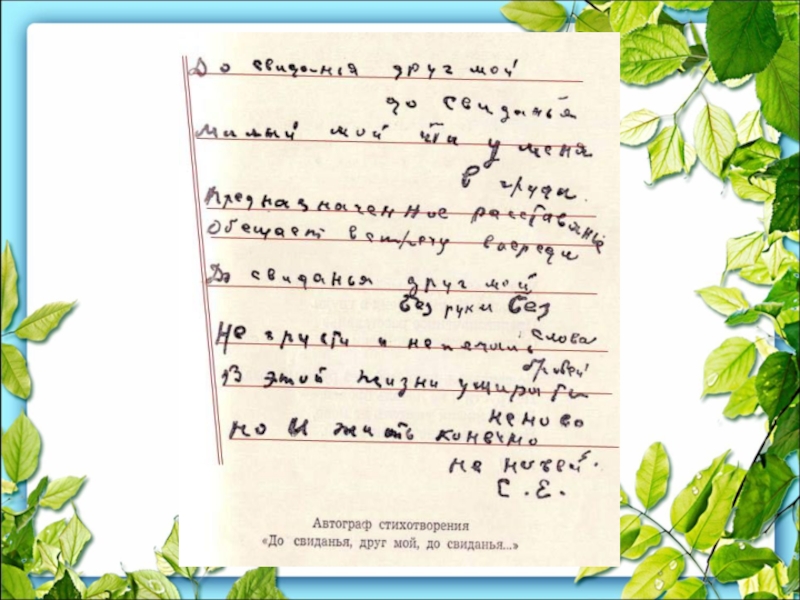 До свиданья друг мой
до свиданья
Милый мой ты у меня
в груди.
Предназначенное расставанье
Обещает встречу впереди
До свиданья друг мой
без руки без
слова
Не грусти и не печаль
бровей
В этой жизни умирать
неново
но и жить конечно
не новей.
С. Е.
Автограф стихотворения
«До свиданья, друг мой, до свиданья...»